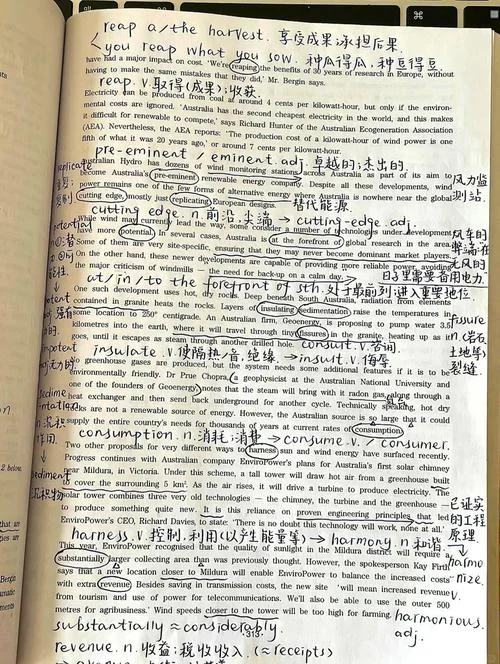 reap a/the harvest. 享受成果;承担后果.
you reap what you sow. 种瓜得瓜, 种豆得豆.
have had a major impact on cost. 'We're reaping the benefits of 30 years of research in Europe, without
having to make the same mistakes that they did,' Mr. Bergin says.
reap. v.取得(成果);收获.
Electricity can be produced from coal at around 4 cents per kilowatt-hour, but only if the environ-
mental costs are ignored. 'Australia has the second cheapest electricity in the world, and this makes
it difficult for renewable to compete,' says Richard Hunter of the Australian Ecogeneration Association
(AEA). Nevertheless, the AEA reports: 'The production cost of a kilowatt-hour of wind power is one
fifth of what it was 20 years ago,' or around 7 cents per kilowatt-hour.
pre-eminent / eminent. adj. 卓越的;杰出的.
Australian Hydro has dozens of wind monitoring stations across Australia as part of its aim to
become Australia's pre-eminent renewable energy company. Despite all these developments, wind
power remains one of the few forms of alternative energy where Australia is nowhere near the global
cutting edge, mostly just replicating European designs.
replicate
风力监
测站.
替代能源.
cutting edge. n. 前沿;尖端 → cutting-edge. adj.
While wind may currently lead the way, some consider a number of technologies under development
have more potential. In several cases, Australia is at the forefront of global research in the area.
Some of them are very site-specific, ensuring that they may never become dominant market players.
On the other hand, these newer developments are capable of providing more reliable power, avoiding
the major criticism of windmills – the need for back-up on a calm day.
potential
风车的
弊端:在
无风的
日子里需要备用电力.
at/in/to the forefront of sth. 处于最前列;进入重要地位
One such development uses hot, dry rocks. Deep beneath South Australia, radiation from elements
contained in granite heats the rocks. Layers of insulating sedimentation raise the temperatures in
some location to 250° centigrade. An Australian firm, Geoenergy, is proposing to pump water 3.5
kilometres into the earth, where it will travel through tiny fissures in the granite, heating up as it
goes, until it escapes as steam through another drilled hole.
fissure
n.(岩石
土地等)
裂缝.
consult. v. 咨询.
insulate. v. 使隔热/音, 绝缘. → insult. v. 侮辱.
No greenhouse gases are produced, but the system needs some additional features if it is to be
environmentally friendly. Dr Prue Chopra, a geophysicist at the Australian National University and
one of the founders of Geoenergy, notes that the steam will bring with it radon gas along through a
heat exchanger and then send back underground for another cycle. Technically speaking, hot dry
rocks are not a renewable source of energy. However, the Australian source is so large that it could
supply the entire country's needs for thousands of years at current rates of consumption.
consumption. n. 消耗;消费 → consume. v. / consumer.
Two other proposals for very different ways to harness sun and wind energy have surfaced recently.
Progress continues with Australian company EnviroPower's plans for Australia's first solar chimney
near Mildura, in Victoria. Under this scheme, a tall tower will draw hot air from a greenhouse built
to cover the surrounding 5 km². As the air rises, it will drive a turbine to produce electricity. The
solar tower combines three very old technologies – the chimney, the turbine and the greenhouse –
to produce something quite new. It is this reliance on proven engineering principles that led
EnviroPower's CEO, Richard Davies, to state: 'There is no doubt this technology will work, none at all.'
sediment
沉积物
已证实
的工程
原理.
harness. v. 控制, 利用(以产生能量等) → harmony. n. 和谐.
This year, EnviroPower recognised that the quality of sunlight in the Mildura district will require a
substantially larger collecting area than was previously thought. However, the spokesperson Kay Firth
says that a new location closer to Mildura will enable EnviroPower to balance the increased costs
with extra revenue. Besides saving in transmission costs, the new site 'will mean increased revenue
from tourism and use of power for telecommunications. We'll also be able to use the outer 500
metres for agribusiness.' Wind speeds closer to the tower will be too high for farming.
harmo
nize.
v.
harmonious.
adj.
substantially ≈ considerably.
·313·
revenue. n. 收益;税收收入. (≈ receipts)